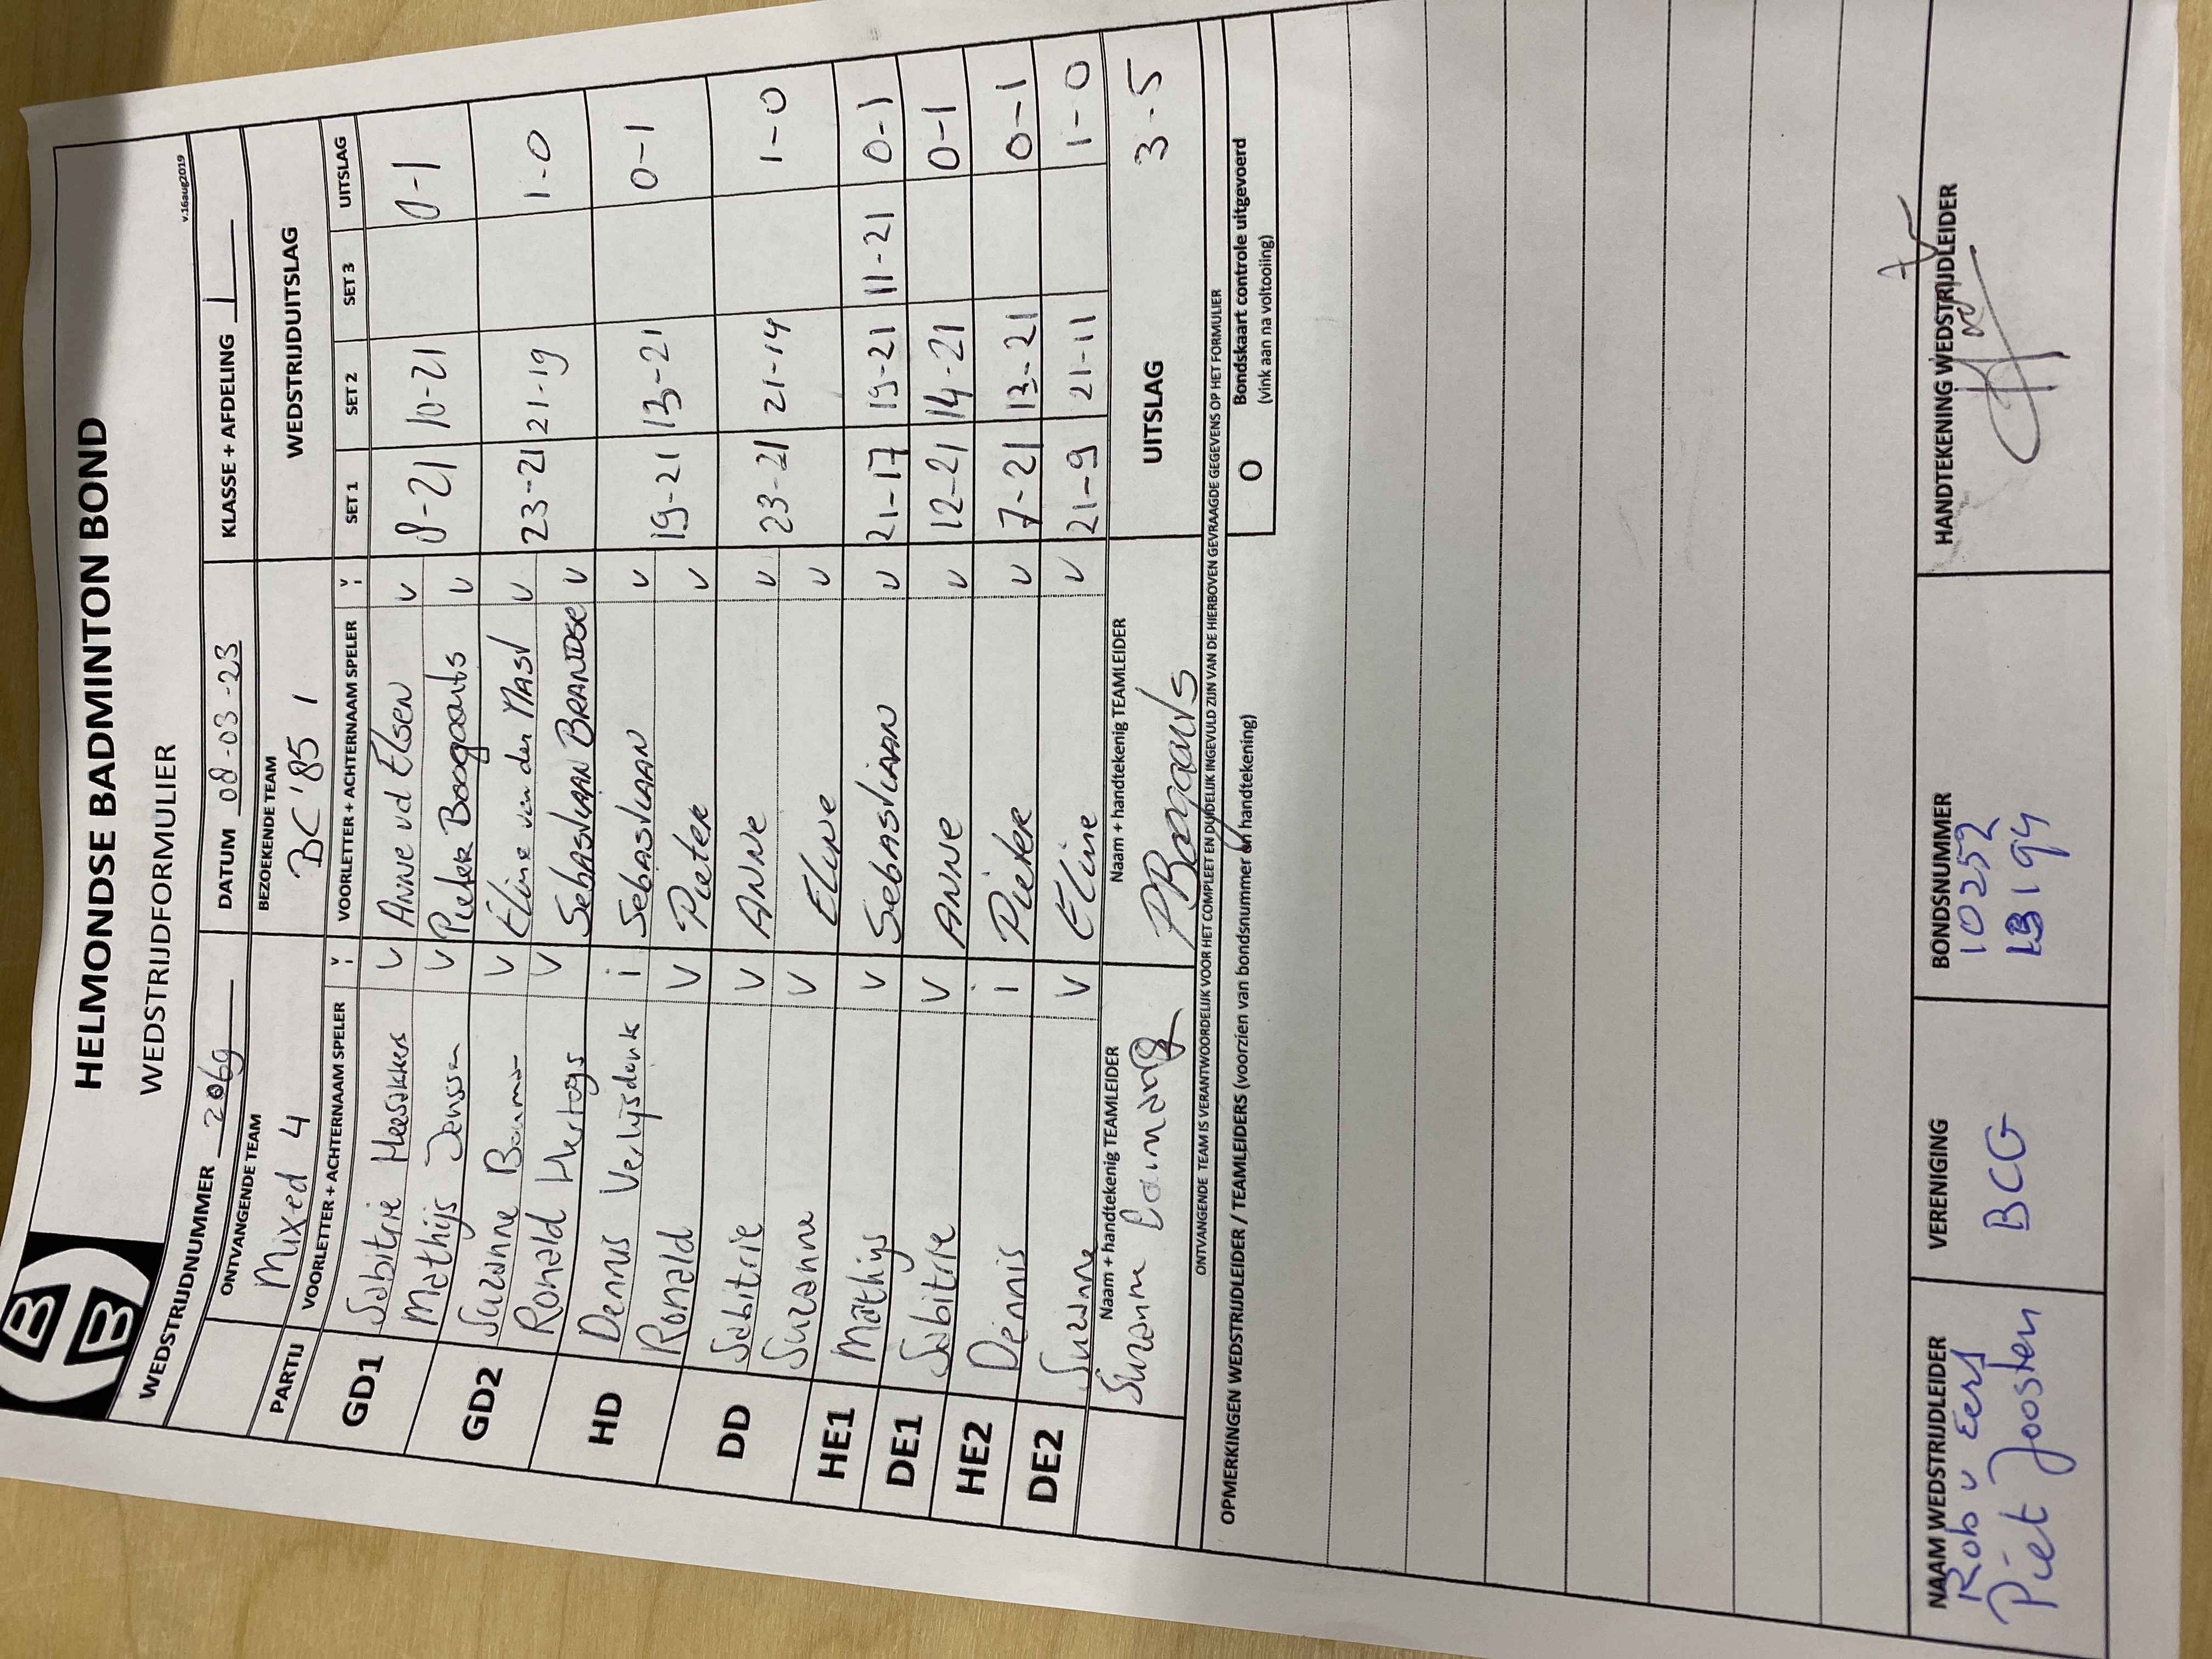 HELMONDSE BADMINTON BOND
WEDSTRIJDFORMULIER
v.16aug2019
HBB
WEDSTRIJDNUMMER 2069 DATUM 08-03-23 KLASSE + AFDELING 1
ONTVANGENDE TEAM BEZOEKENDE TEAM WEDSTRIJDUITSLAG
Mixed 4 BC '85 1
PARTIJ VOORLETTER + ACHTERNAAM SPELER V/I VOORLETTER + ACHTERNAAM SPELER V/I SET 1 SET 2 SET 3 UITSLAG
GD1 Sabitrie Meesakkers V Anne vd Elsen V 8-21 10-21 0-1
Mathijs Janssen V Pieter Boogaarts V
GD2 Suzanne Bouman V Eline van der Mast V 23-21 21-19 1-0
Ronald Hertogs V Sebastiaan Brandse V
HD Dennis Verlijsdonk i Sebastiaan V 19-21 13-21 0-1
Ronald V Pieter V
DD Sabitrie V Anne V 23-21 21-14 1-0
Suzanne V Eline V
HE1 Mathijs V Sebastiaan V 21-17 19-21 11-21 0-1
DE1 Sabitrie V Anne V 12-21 14-21 0-1
HE2 Dennis i Pieter V 7-21 13-21 0-1
DE2 Suzanne V Eline V 21-9 21-11 1-0
Naam + handtekenig TEAMLEIDER Naam + handtekenig TEAMLEIDER UITSLAG 3-5
Suzanne PBoogaarts
ONTVANGENDE TEAM IS VERANTWOORDELIJK VOOR HET COMPLEET EN DUIDELIJK INGEVULD ZIJN VAN DE HIERBOVEN GEVRAAGDE GEGEVENS OP HET FORMULIER
OPMERKINGEN WEDSTRIJDLEIDER / TEAMLEIDERS (voorzien van bondsnummer en handtekening) O Bondskaart controle uitgevoerd
(vink aan na voltooiing)
NAAM WEDSTRIJDLEIDER VERENIGING BONDSNUMMER HANDTEKENING WEDSTRIJDLEIDER
Rob v Eerd 10252
Piet Joosten BCG 13194